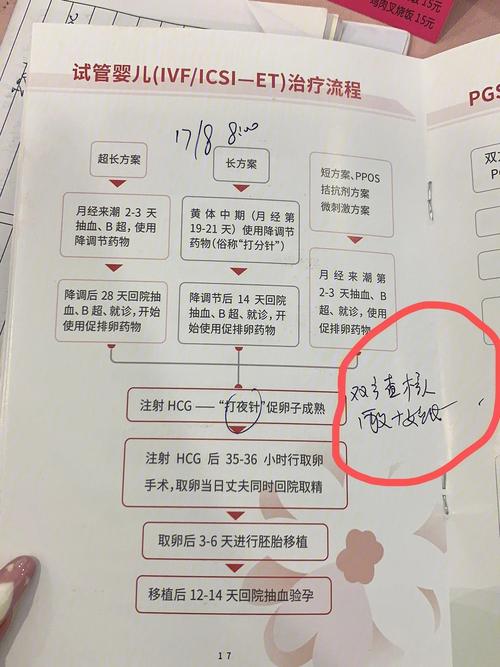 鸡肉叉烧饭 15元
试管婴儿(IVF/ICSI—ET)治疗流程
PGS
17/8 8:00
超长方案
长方案
短方案、PPOS
拮抗剂方案
微刺激方案
月经来潮 2-3 天
抽血、B 超，使用
降调节药物
黄体中期（月经第
19-21 天）使用降调节
药物（俗称“打分针”）
月经来潮第
2-3 天抽血、B
超、就诊，使用
促排卵药物
降调后 28 天回院抽
血、B 超、就诊，开始
使用促排卵药物
降调节后 14 天回院
抽血、B 超、就诊，开
始使用促排卵药物
注射 HCG —— “打夜针”促卵子成熟
注射 HCG 后 35-36 小时行取卵
手术，取卵当日丈夫同时回院取精
取卵后 3-6 天进行胚胎移植
移植后 12-14 天回院抽血验孕
17